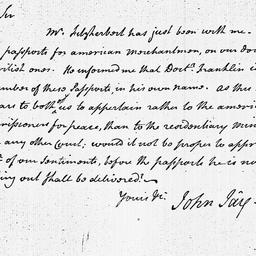 Sir
Mr. Fitzherbert has just been with me.
passports for american merchantmen, on our do
itish ones. He informed me that Doctr. Franklin i
mber of these Passports in his own name. As this
ars to both of us to appertain rather to the ameri
missioners for peace, than to the residentiary min
any other Court; would it not be proper to appr
of our Sentiments, before the passports he is no
ing out shall be delivered?
Yours &c.
John Jay